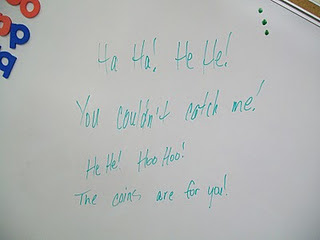 Ha Ha! He He!
You couldn't catch me!
He He! Hoo Hoo!
The coins are for you!